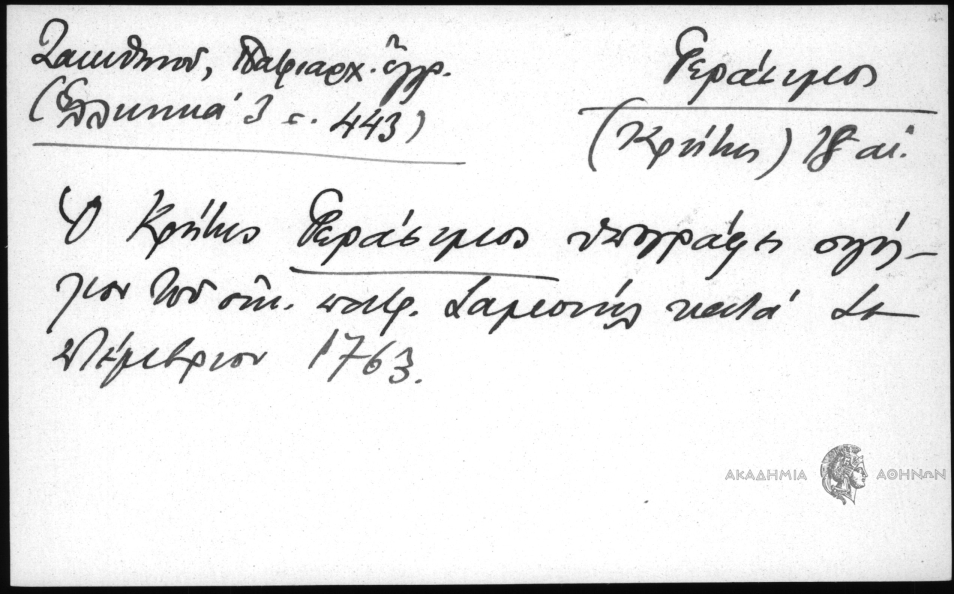 Ζακυθηνού, Πατριαρχ. ἔγγρ.
(Ἑλληνικά 3 σ. 443)
Γεράσιμος
(Κρήτης) 18 αἰ.
Ὁ Κρήτης Γεράσιμος ὑπογράφει σιγίλ-
λιον τοῦ οἰκ. πατρ. Σαμουήλ κατά Σε
πτέμβριον 1763.
ΑΚΑΔΗΜΙΑ ΑΘΗΝΩΝ